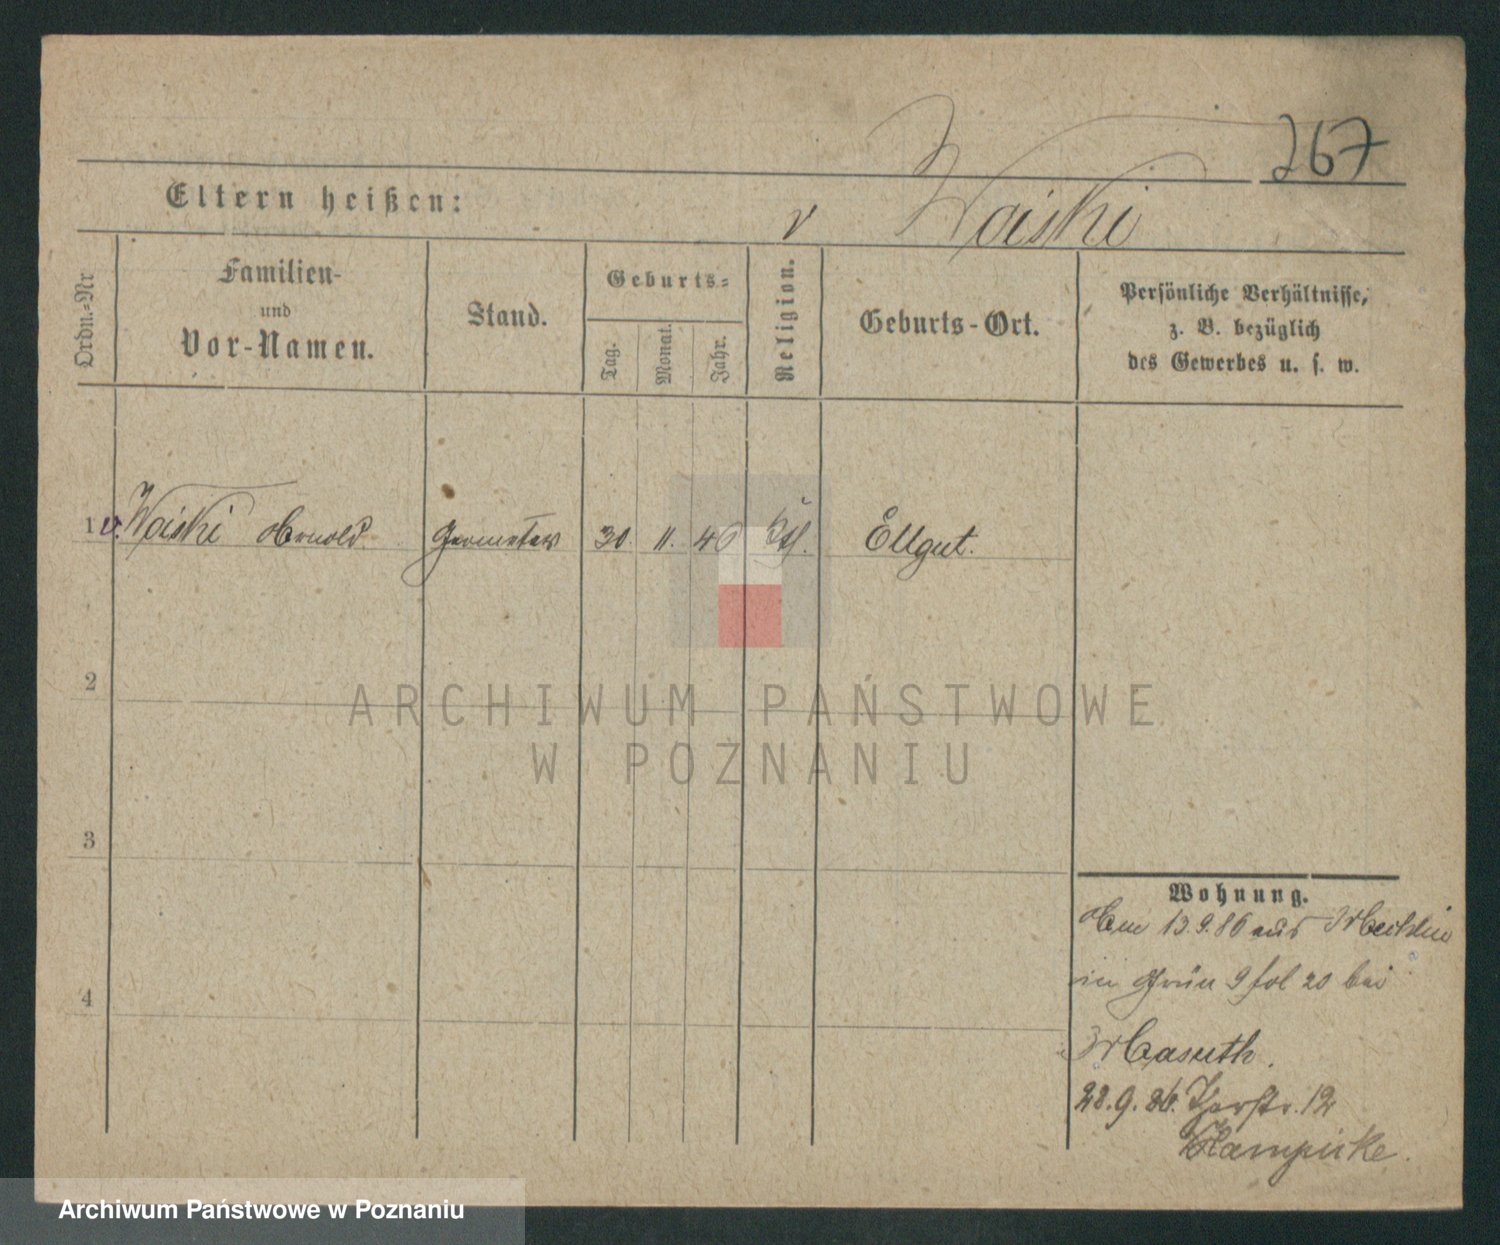 267
Eltern heißen:
v Waiski
Ordn.-Nr
Familien-
und
Vor-Namen.
Stand.
Geburts-
Tag.
Monat.
Jahr.
Religion.
Geburts-Ort.
Persönliche Verhältnisse,
z. B. bezüglich
des Gewerbes u. s. w.
1 v. Waiski Arnold. Geometer 30. 11. 40 Ktl. Ellgut.
2
3
4
ARCHIWUM PAŃSTWOWE
W POZNANIU
Wohnung.
Am 13.9.86 aus
in Grün 9 fol 20 bei
Masuth.
28.9.86. 12
Klampicke.
Archiwum Państwowe w Poznaniu